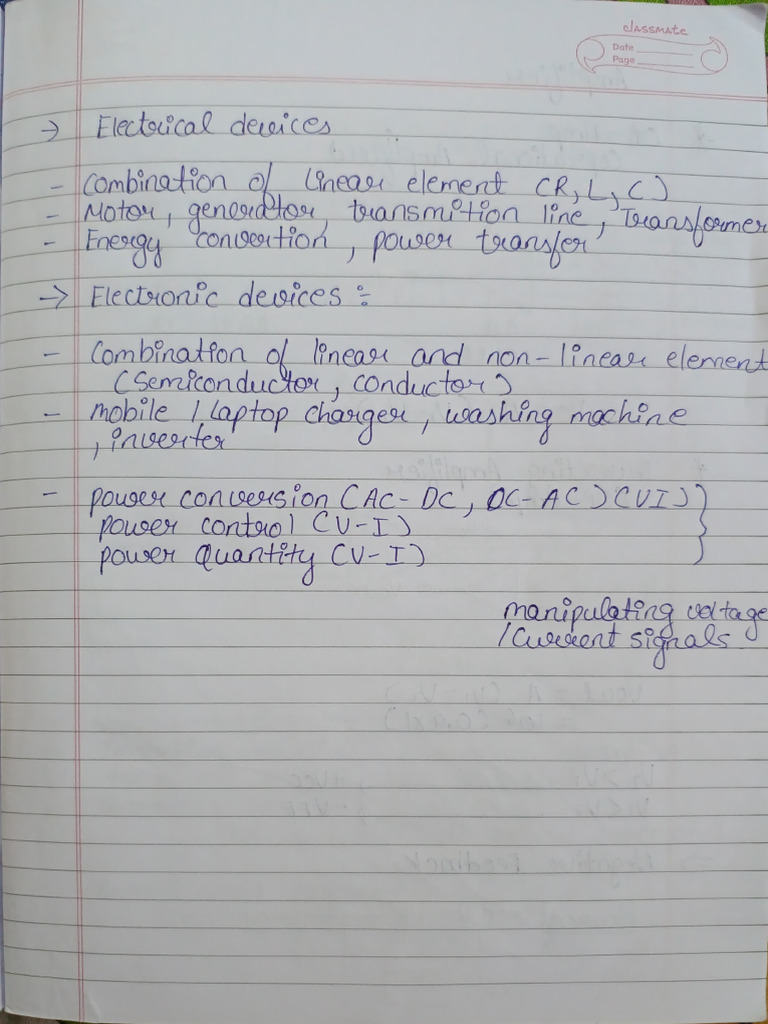 classmate
Date
Page
→ Electrical devices
- Combination of linear element (R, L, C)
- Motor, generator, transmition line, Transformer
- Energy convertion, power transfer
→ Electronic devices :-
- Combination of linear and non-linear element
(semiconductor, conductor)
- mobile / Laptop charger, washing machine
, inverter
- power conversion (AC-DC, DC-AC) (VI) }
power control (V-I)
power Quantity (V-I)
manipulating voltage
/ Current signals